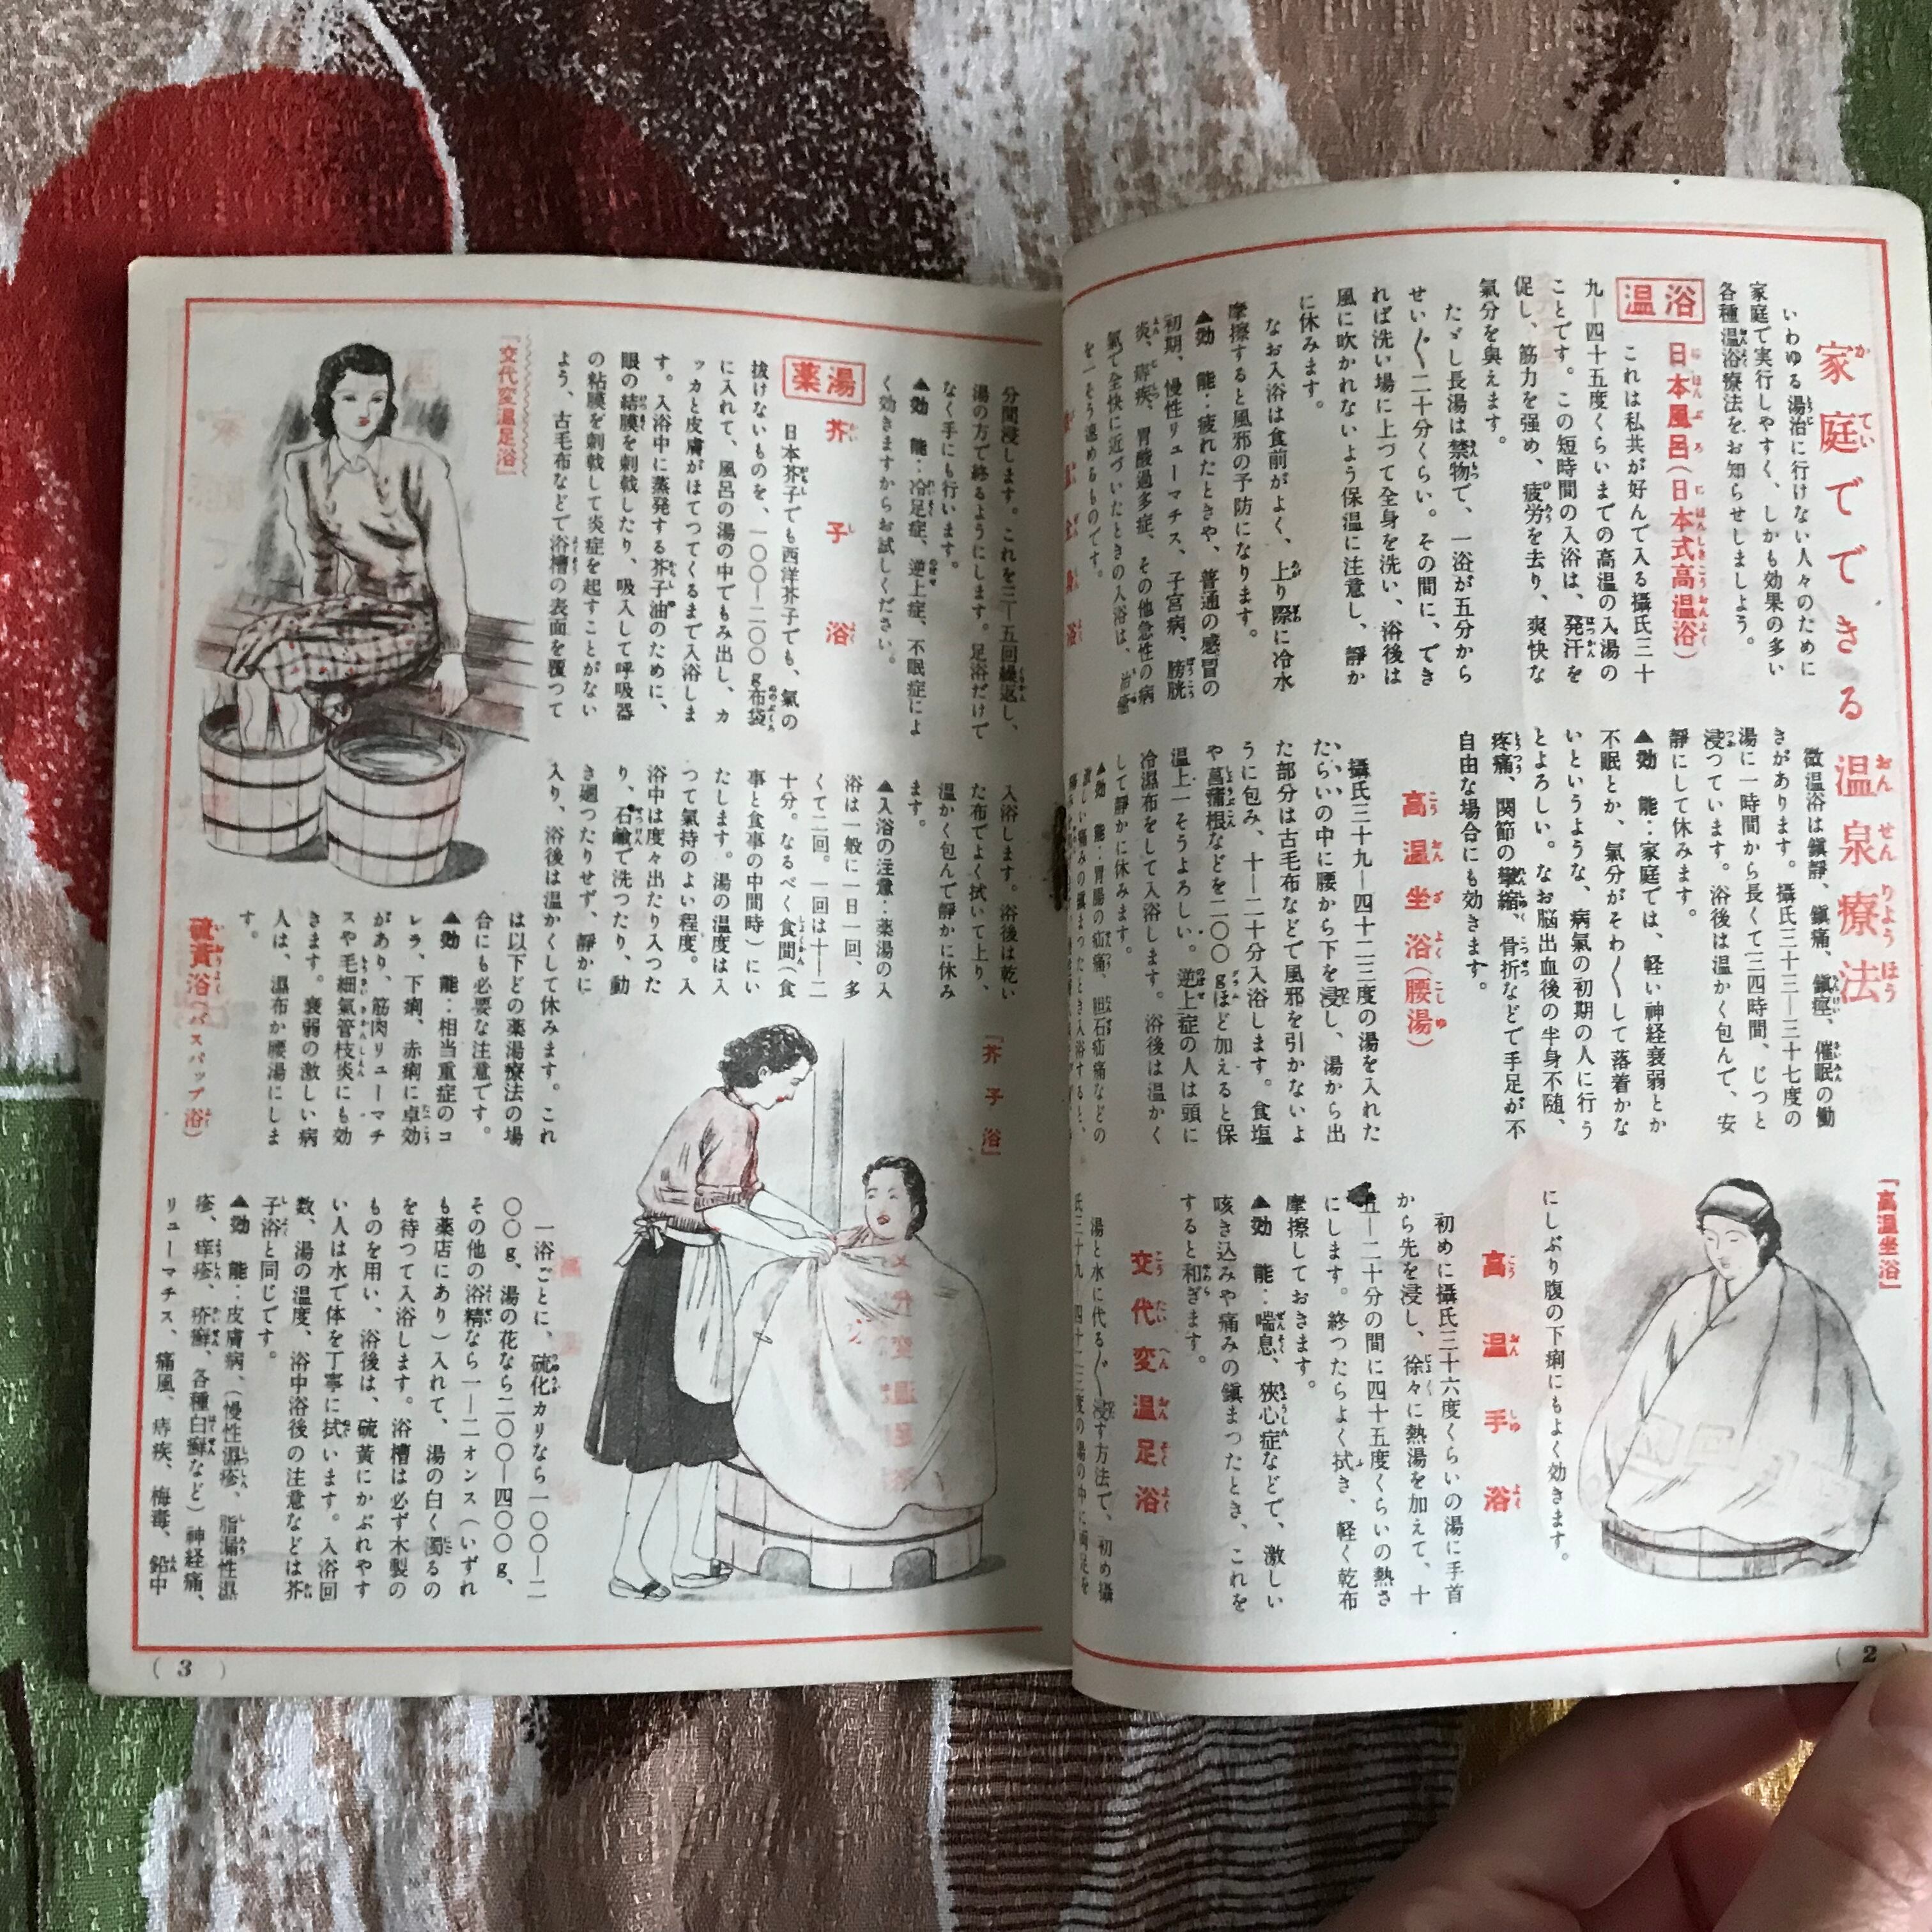 家庭でできる温泉療法
いわゆる湯治に行けない人々のために
家庭で実行しやすく、しかも効果の多い
各種温浴療法をお知らせしましよう。
温浴
日本風呂(日本式高温浴)
これは私共が好んで入る攝氏三十
九―四十五度くらいまでの高温の入湯の
ことです。この短時間の入浴は、発汗を
促し、筋力を強め、疲労を去り、爽快な
氣分を與えます。
たゞし長湯は禁物で、一浴が五分から
せい〴〵二十分くらい。その間に、でき
れば洗い場に上つて全身を洗い、浴後は
風に吹かれないよう保温に注意し、靜か
に休みます。
なお入浴は食前がよく、上り際に冷水
摩擦すると風邪の予防になります。
▲効 能：疲れたときや、普通の感冒の
初期、慢性リューマチス、子宮病、膀胱
炎、痔疾、胃酸過多症、その他急性の病
氣で全快に近づいたときの入浴は、治癒
を一そう速めるものです。
微温浴は鎭靜、鎭痛、鎭痙、催眠の働
きがあります。攝氏三十三―三十七度の
湯に一時間から長くて三四時間、じつと
浸つています。浴後は温かく包んで、安
靜にして休みます。
▲効 能：家庭では、軽い神経衰弱とか
不眠とか、氣分がそわ〳〵して落着かな
いというような、病氣の初期の人に行う
とよろしい。なお脳出血後の半身不随、
疼痛、関節の攣縮、骨折などで手足が不
自由な場合にも効きます。
高温坐浴(腰湯)
攝氏三十九―四十二三度の湯を入れた
たらいの中に腰から下を浸し、湯から出
た部分は古毛布などで風邪を引かないよ
うに包み、十―二十分入浴します。食塩
や菖蒲根などを二〇〇gほど加えると保
温上一そうよろしい。逆上症の人は頭に
冷濕布をして入浴します。浴後は温かく
して靜かに休みます。
▲効 能：胃腸の疝痛、胆石疝痛などの
「高温坐浴」
にしぶり腹の下痢にもよく効きます。
高温手浴
初めに攝氏三十六度くらいの湯に手首
から先を浸し、徐々に熱湯を加えて、十
五―二十分の間に四十五度くらいの熱さ
にします。終つたらよく拭き、軽く乾布
摩擦しておきます。
▲効 能：喘息、狹心症などで、激しい
咳き込みや痛みの鎭まつたとき、これを
すると和ぎます。
交代変温足浴
湯と水に代る〴〵浸す方法で、初め攝
(2)
分間浸します。これを三―五回繰返し、
湯の方で終るようにします。足浴だけで
なく手にも行います。
▲効 能：冷足症、逆上症、不眠症によ
く効きますからお試しください。
薬湯
芥子浴
日本芥子でも西洋芥子でも、氣の
抜けないものを、一〇〇―二〇〇g布袋
に入れて、風呂の湯の中でもみ出し、カ
ッカと皮膚がほてつてくるまで入浴しま
す。入浴中に蒸発する芥子油のために、
眼の結膜を刺戟したり、吸入して呼吸器
の粘膜を刺戟して炎症を起すことがない
よう、古毛布などで浴槽の表面を覆つて
「交代変温足浴」
入浴します。浴後は乾い
た布でよく拭いて上り、
温かく包んで靜かに休み
ます。
▲入浴の注意：薬湯の入
浴は一般に一日一回、多
くて二回。一回は十―二
十分。なるべく食間(食
事と食事の中間時)にい
たします。湯の温度は入
つて氣持のよい程度。入
浴中は度々出たり入つた
り、石鹸で洗つたり、動
き廻つたりせず、靜かに
入り、浴後は温かくして休みます。これ
は以下どの薬湯療法の場
合にも必要な注意です。
▲効 能：相当重症のコ
レラ、下痢、赤痢に卓効
があり、筋肉リューマチ
スや毛細氣管枝炎にも効
きます。衰弱の激しい病
人は、濕布か腰湯にしま
す。
「芥子浴」
硫黄浴(バスパップ浴)
一浴ごとに、硫化カリなら一〇〇―二
〇〇g、湯の花なら二〇〇―四〇〇g、
その他の浴精なら一―二オンス(いずれ
も薬店にあり)入れて、湯の白く濁るの
を待つて入浴します。浴槽は必ず木製の
ものを用い、浴後は、硫黄にかぶれやす
い人は水で体を丁寧に拭います。入浴回
数、湯の温度、浴中浴後の注意などは芥
子浴と同じです。
▲効 能：皮膚病、(慢性濕疹、脂漏性濕
疹、痒疹、疥癬、各種白癬など)神経痛、
リューマチス、痛風、痔疾、梅毒、鉛中
(3)